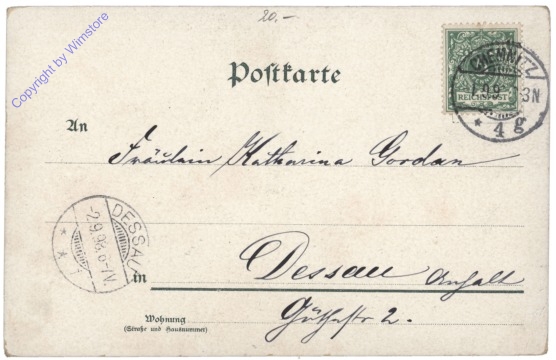 20.-
Copyright by Wimstore
Postkarte
CHEMNITZ
3N
* 4 g
REICHSPOST
An
Fräulein Katharina Gordan
DESSAU
-2.9.98.
in
Dessau Anhalt
Wohnung
(Straße und Hausnummer)